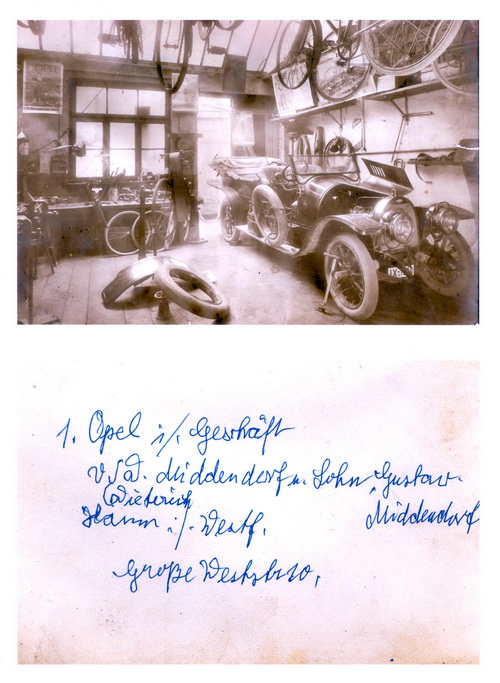 1. Opel i/. Geschäft
v. D. Middendorf u. Sohn Gustav.
(Dieterich Middendorf
Hamm i/. Westf.
Große Weststr.